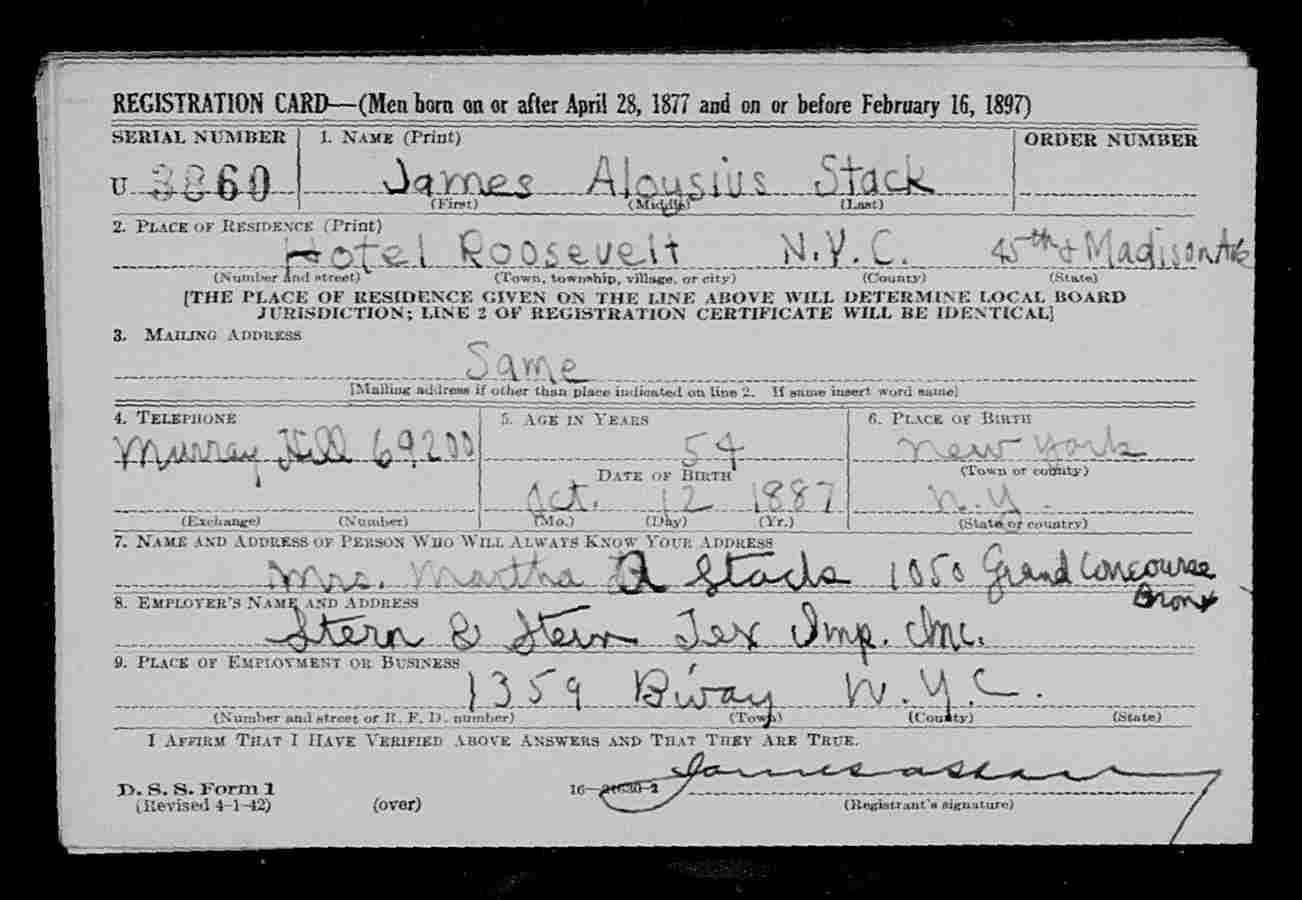 REGISTRATION CARD—(Men born on or after April 28, 1877 and on or before February 16, 1897)
SERIAL NUMBER 1. NAME (Print) ORDER NUMBER
U 3860 James Aloysius Stack
(First) (Middle) (Last)
2. PLACE OF RESIDENCE (Print)
Hotel Roosevelt N.Y.C. 45th & Madison Ave
(Number and street) (Town, township, village, or city) (County) (State)
[THE PLACE OF RESIDENCE GIVEN ON THE LINE ABOVE WILL DETERMINE LOCAL BOARD
JURISDICTION; LINE 2 OF REGISTRATION CERTIFICATE WILL BE IDENTICAL]
3. MAILING ADDRESS
Same
[Mailing address if other than place indicated on line 2. If same insert word same]
4. TELEPHONE 5. AGE IN YEARS 6. PLACE OF BIRTH
Murray Hill 69200 54 New York
DATE OF BIRTH (Town or county)
Oct. 12 1887 N.Y.
(Exchange) (Number) (Mo.) (Day) (Yr.) (State or country)
7. NAME AND ADDRESS OF PERSON WHO WILL ALWAYS KNOW YOUR ADDRESS
Mrs. Martha A Stack 1050 Grand Concourse
Bronx
8. EMPLOYER'S NAME AND ADDRESS
Stern & Stern Tex Imp. Inc.
9. PLACE OF EMPLOYMENT OR BUSINESS
1359 B'way N.Y.C.
(Number and street or R. F. D. number) (Town) (County) (State)
I AFFIRM THAT I HAVE VERIFIED ABOVE ANSWERS AND THAT THEY ARE TRUE.
James A Stack
D. S. S. Form 1 16—21630-2
(Revised 4-1-42) (over) (Registrant's signature)